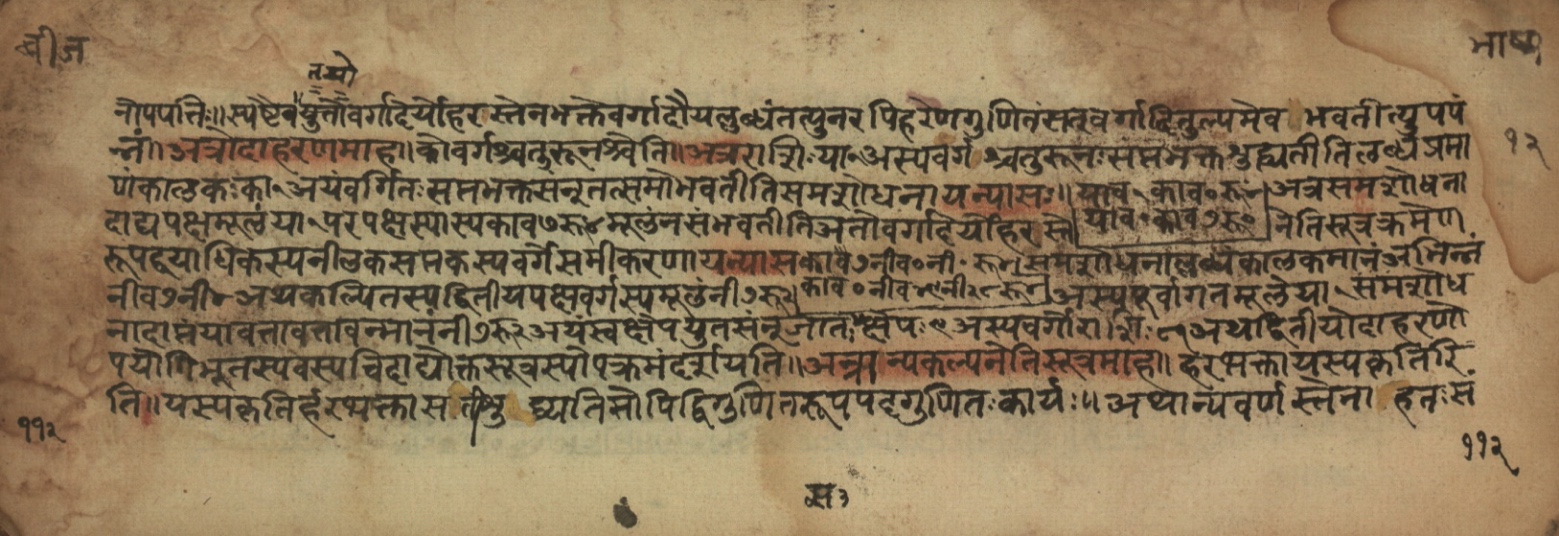 बीज
भाष्य
तयो
नोपपत्तिः॥स्पष्टैवयुत्तौवर्गादेर्योहरस्तेनभक्तेवर्गादौयल्लब्धंतत्पुनरपिहरेणगुणितंसत्वर्गादितुल्यमेव भवतीत्युपपं
न्नं॥अत्रोदाहरणमाह॥कोवर्गश्चतुरूनश्चेति॥अत्रराशिः या१अस्यवर्गश्चतुरूनःसप्तभक्तशुद्ध्यतीतिलब्धंप्रमा
१२
णंकालकःका१अयंवर्गितःसप्तभक्तसनूतत्समोभवतीतिसमशोधनायन्यासः॥ याव१काव०रू अत्रसमशोधना
दाद्यपक्षमूलंया१परपक्षस्यास्यकाव७रू४मूलंनसंभवतीतिअतोवर्गादेर्योहरस्ते याव०काव७रू० नेतिसूत्रक्रमेण
रूपद्वयाधिकस्यनीलकसप्तकस्यवर्गेसमीकरणायन्यासकाव७नीव०नी०रू४समशोधनाल्लब्धंकालकमानंअभिन्नं
नीव७नी४अथकल्पितस्यद्वितीयपक्षवर्गस्यमूलंनी७रू२ काव०नीव४९नी२८रू४ अस्यपूर्वागतमूलेया१समशोध
नादाप्तयावत्तावत्तावन्मानंनी७रू२अयंस्वक्षेपयुतसंनूजातःक्षेपः९अस्यवर्गोराशिः८१अथद्वितीयोदाहरणो
पयोगिभूतस्यवस्यचिदाद्योक्तसूत्रस्योपक्रमंदर्शयति॥अत्रान्यकल्पनेतिसूत्रमाह॥हरभक्तायस्यकृतिरि
ति॥यस्यकृतिर्हरभक्तासतीशुद्ध्यतिसोपिद्विगुणितरूपपदगुणितःकार्यः॥अथान्यवर्णस्तेनाहतःसं
११२
११२